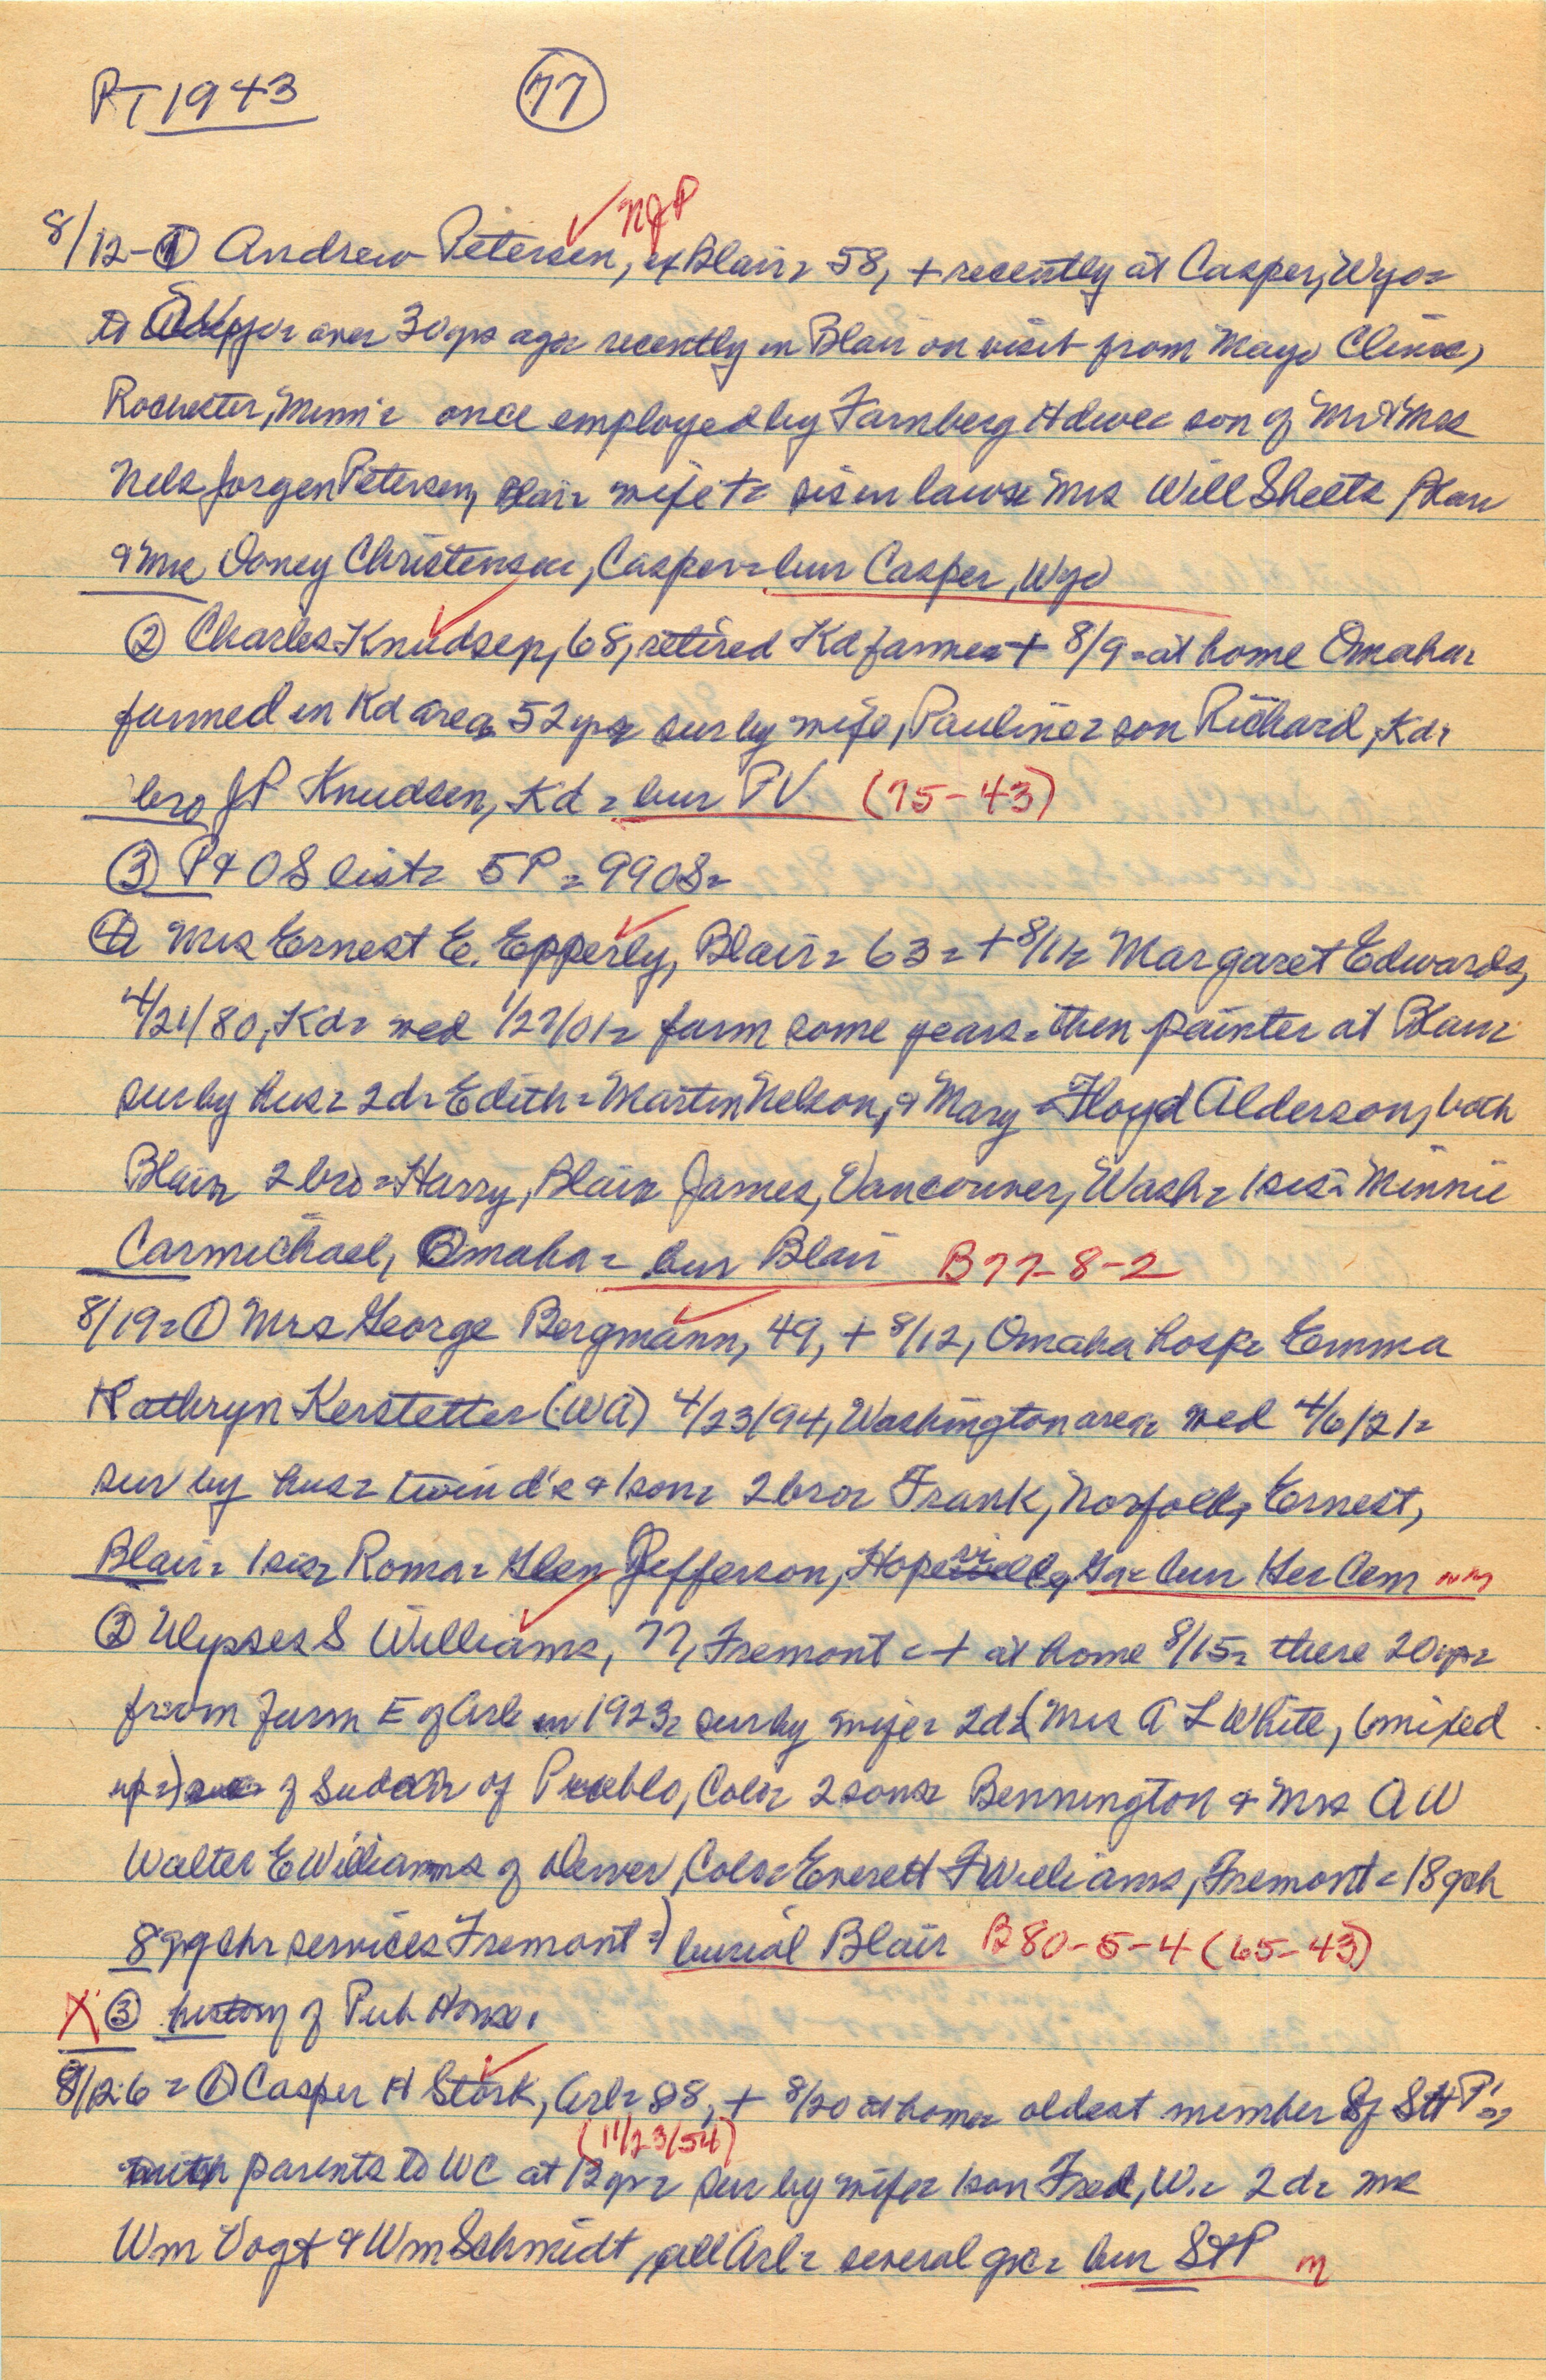 PT 1943 77
NJP
8/12-① Andrew Petersen, ex Blair = 58, + recently at Casper, Wyo =
to over 30 yrs ago = recently in Blair on visit from Mayo Clinic,
Rochester, Minn = once employed by Farnberg Hdwe = son of Mr & Mrs
Nels Jorgen Petersen, Blair = wife + = sis in laws = Mrs Will Sheets, Blair
& Mrs Doney Christensen, Casper = bur Casper, Wyo
② Charles Knudsen, 68, retired Kd farmer = + 8/9 = at home Omaha =
farmed in Kd area 52 yrs = sur by wife, Pauline = son Richard, Kd =
bro JP Knudsen, Kd = bur PV (75-43)
③ P & OS list = 5P = 99 OS =
④ Mrs Ernest E. Epperly, Blair = 63 = + 8/11 = Margaret Edwards,
4/21/80, Kd = wed 1/27/01 = farm some years = then painter at Blair =
sur by hus = 2d = Edith = Martin Nelson, & Mary = Floyd Alderson, both
Blair 2 bro = Harry, Blair James, Vancouver, Wash = 1 sis = Minnie
Carmichael, Omaha = bur Blair B77-8-2
8/19 = ① Mrs George Bergmann, 49, + 8/12, Omaha hosp = Emma
Kathryn Kerstetter (WA) 4/23/94, Washington area = wed 4/6/21 =
sur by hus = twin d's & 1 son = 2 bro = Frank, Norfolk, Ernest,
Blair = 1 sis = Roma = Glen Jefferson, Ga = bur Her Cem nm
② Ulysses S Williams, 77, Fremont = + at home 8/15 = there 20 yrs =
from farm E of Arl in 1923 = sur by wife = 2d = (Mrs A L White, (mixed
up =) of of Pueblo, Colo = 2 sons = Bennington & Mrs A W
Walter E Williams of Denver, Colo = Everett F Williams, Fremont = 18 gch
8 ggch = services Fremont =) burial Blair B80-5-4 (65-43)
X ③ history of Pub House.
8/26 = ① Casper H Stork, Arl = 88, + 8/20 at home = oldest member of St P's =
(11/23/54)
with parents to WC at 12 yr = sur by wife = 1 son Fred, W. = 2d = Mrs
Wm Vogt & Wm Schmidt, all Arl = several gc = bur St P m